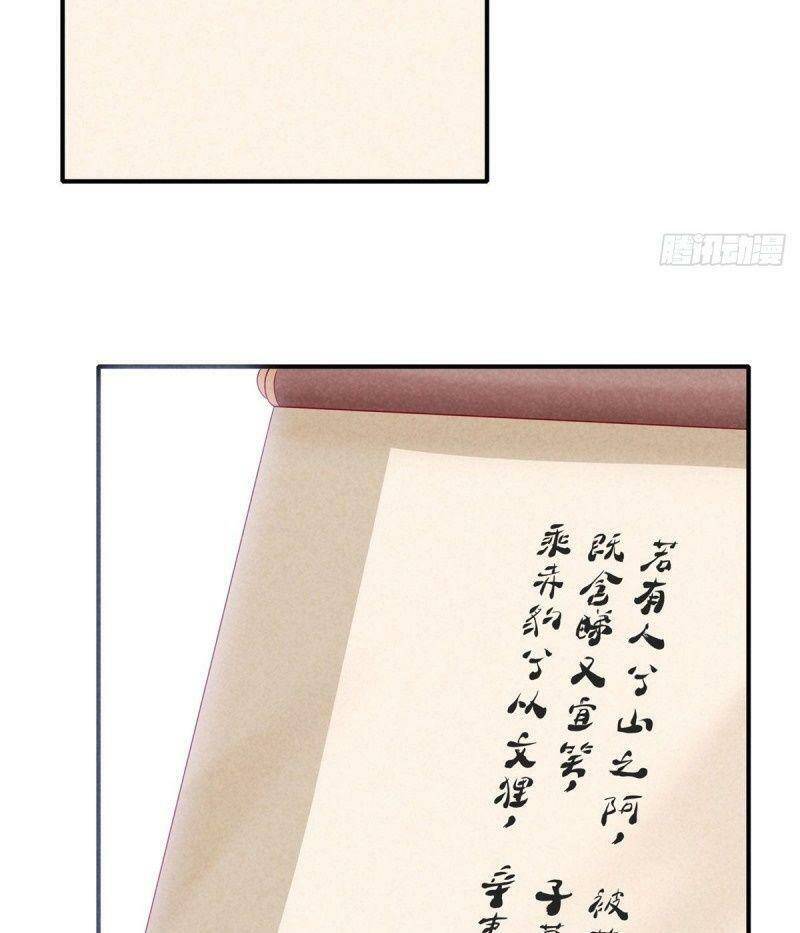 腾讯动漫
若有人兮山之阿，被
既含睇又宜笑，子
乘赤豹兮从文狸，辛